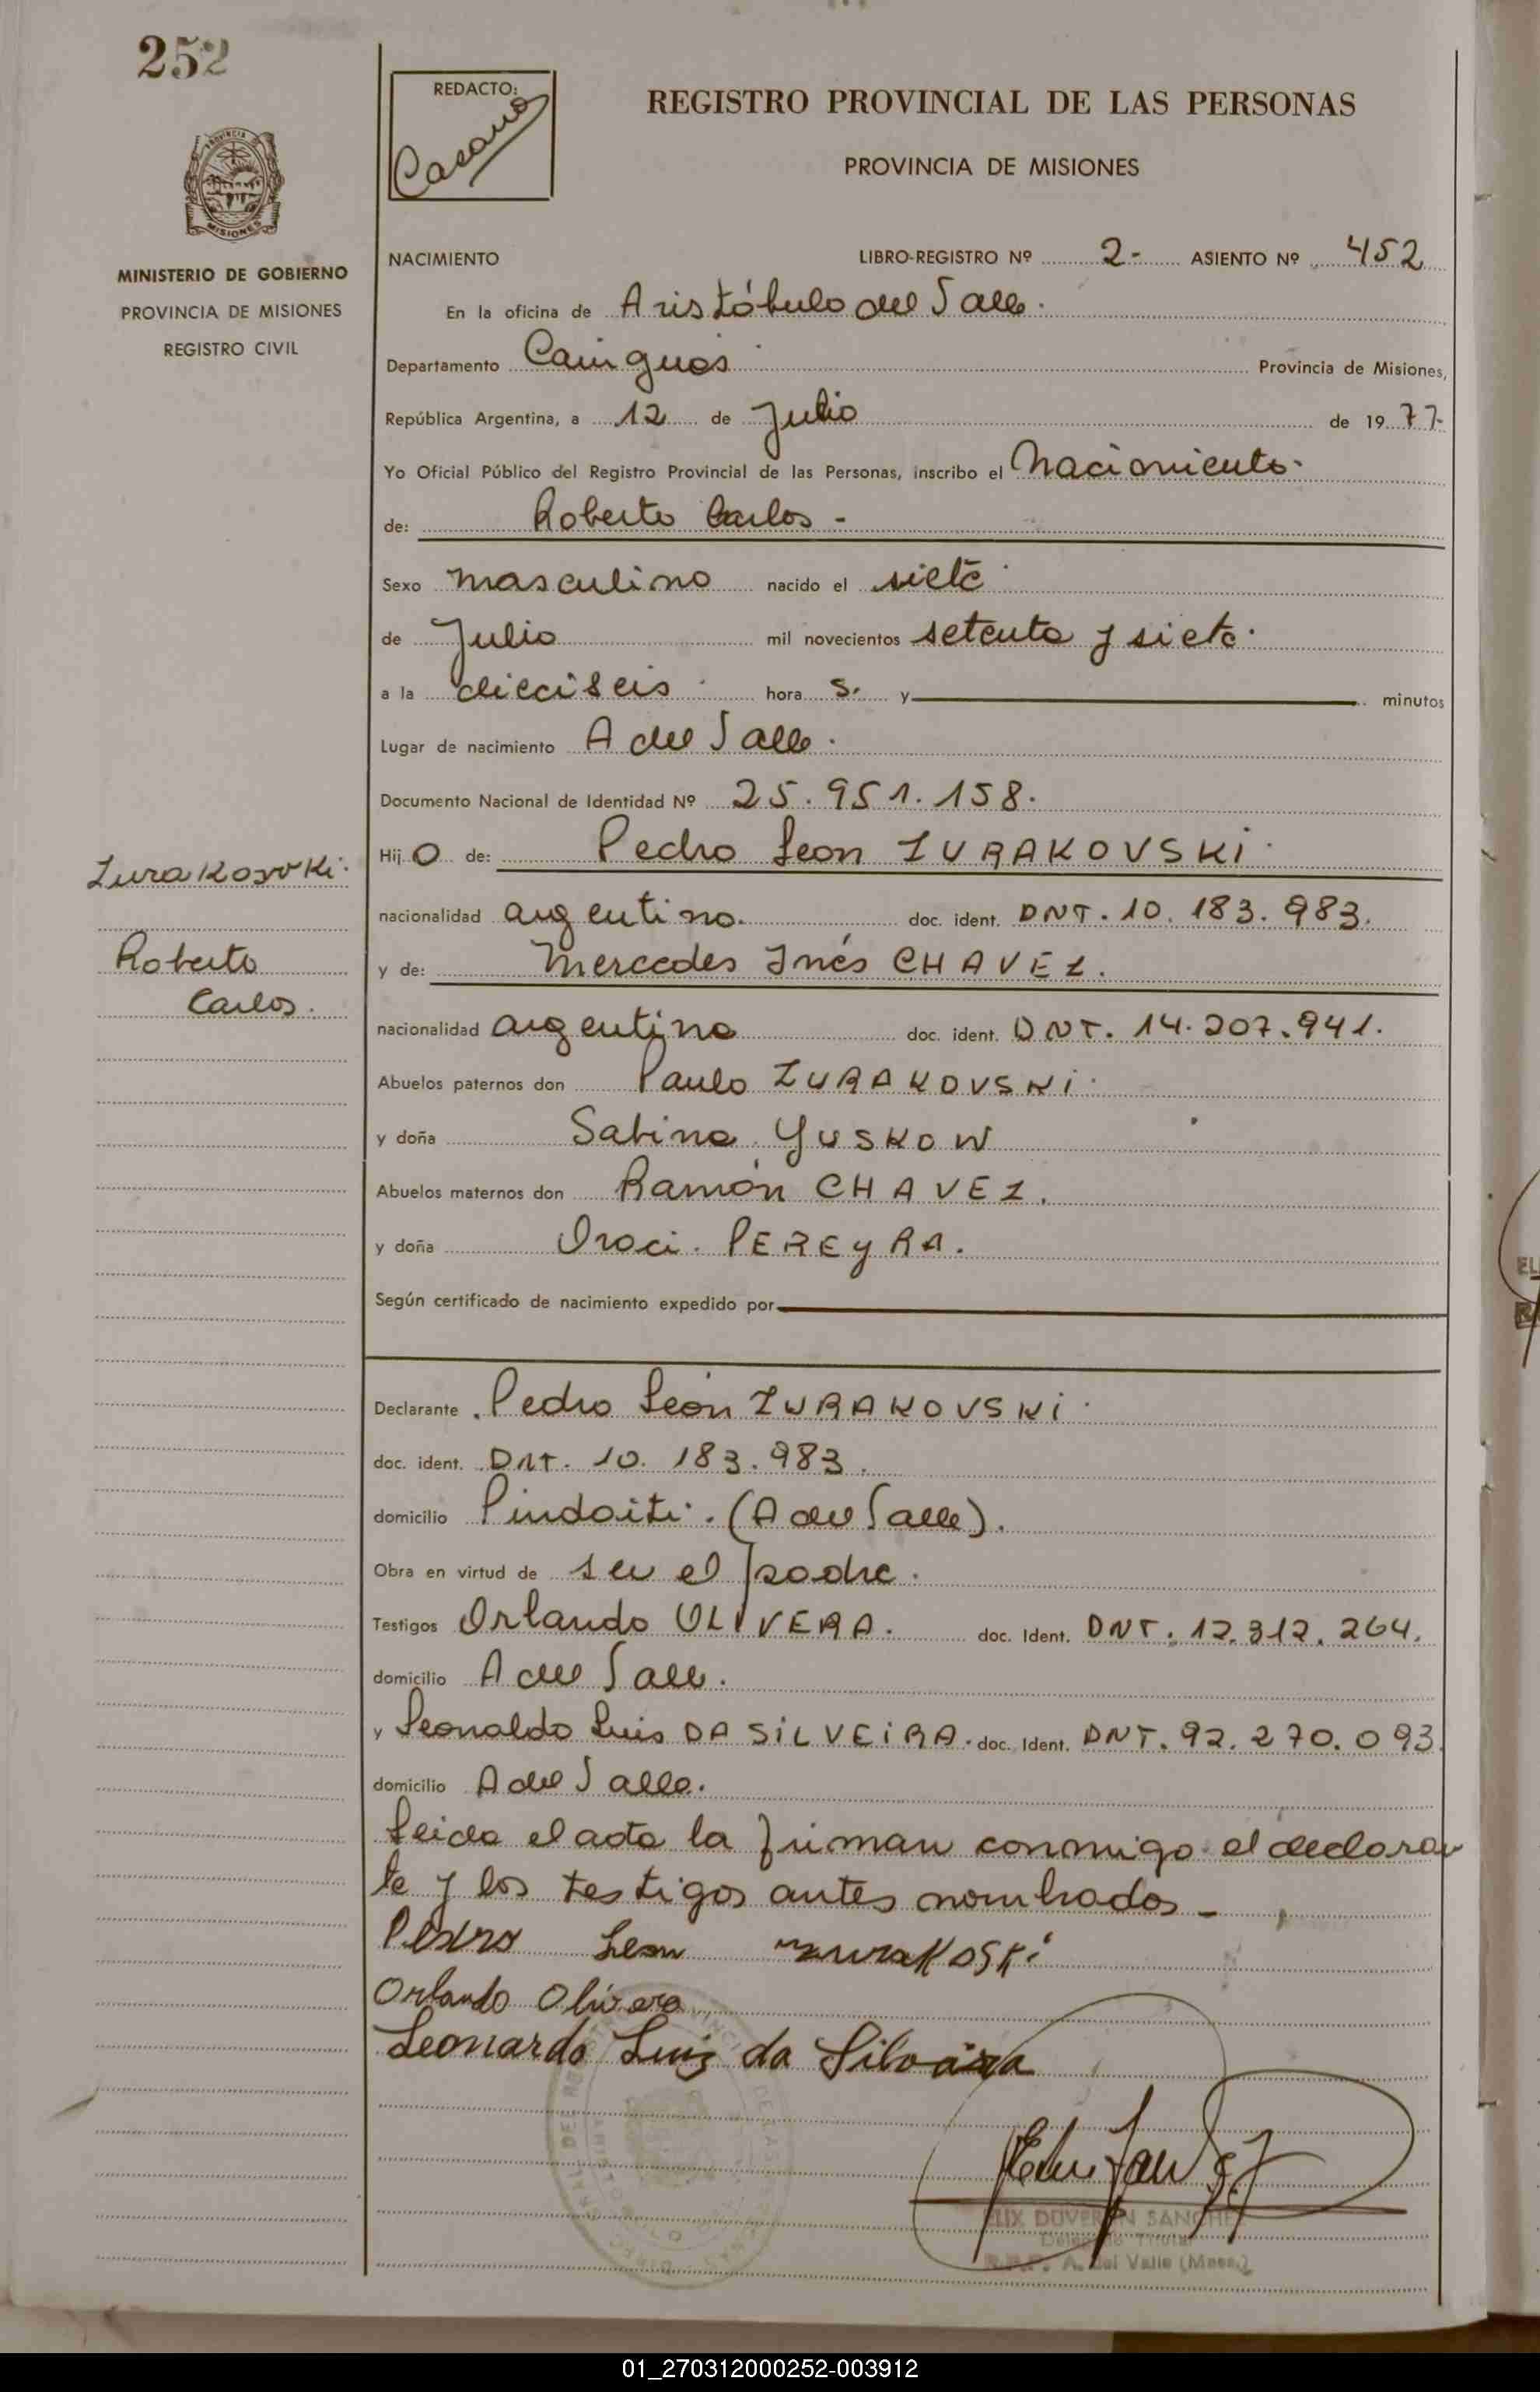 252
REDACTO:
Casano
REGISTRO PROVINCIAL DE LAS PERSONAS
PROVINCIA DE MISIONES
PROVINCIA
MISIONES
MINISTERIO DE GOBIERNO
PROVINCIA DE MISIONES
REGISTRO CIVIL
NACIMIENTO LIBRO-REGISTRO Nº 2- ASIENTO Nº 452
En la oficina de Aristóbulo del Valle.
Departamento Cainguas Provincia de Misiones,
República Argentina, a 12 de Julio de 19 77-
Yo Oficial Público del Registro Provincial de las Personas, inscribo el Nacimiento.
de: Roberto Carlos -
Sexo masculino nacido el siete
de Julio mil novecientos setenta y siete.
a la dieciseis hora s. y minutos
Lugar de nacimiento A del Valle.
Documento Nacional de Identidad Nº 25.951.158.
Hij o de: Pedro Leon ZURAKOVSKi
nacionalidad argentino. doc. ident. DNT. 10.183.983.
y de: Mercedes Inés CHAVEZ.
nacionalidad argentina doc. ident. DNT. 14.207.941.
Abuelos paternos don Paulo ZURAKOVSKi
y doña Sabina YUSKOW
Abuelos maternos don Ramón CHAVEZ.
y doña Oraci. PEREyRA.
Según certificado de nacimiento expedido por
Zurakosvki.
Roberto
Carlos.
Declarante Pedro León ZURAKOVSKi
doc. ident. DNT. 10.183.983.
domicilio Pindaiti. (A del Valle).
Obra en virtud de ser el padre.
Testigos Orlando OLIVERA. doc. Ident. DNT. 12.312.264.
domicilio A del Valle.
y Leonaldo Luis DA SiLVEiRA. doc. Ident. DNT. 92.270.093.
domicilio A del Valle.
Leida el acta la firman conmigo el declaran
te y los testigos antes nombrados -
Pedro Leon zurakoski
Orlando Olivera
Leonardo Luiz da Silveira
FELIX DUVERON SANCHEZ
Delegado Titular
R.P.P. A. del Valle (Mnes.)
01_270312000252-003912